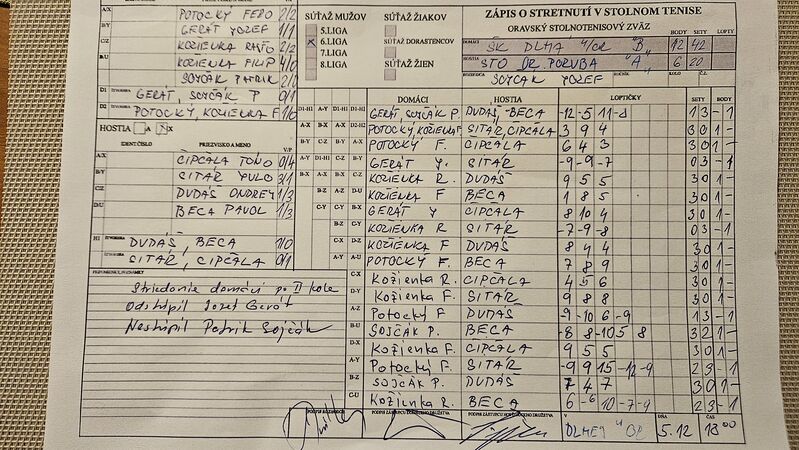 ZÁPIS O STRETNUTÍ V STOLNOM TENISE
ORAVSKÝ STOLNOTENISOVÝ ZVÄZ
SÚŤAŽ MUŽOV
5.LIGA
x 6.LIGA
7.LIGA
8.LIGA
SÚŤAŽ ŽIAKOV
SÚŤAŽ DORASTENCOV
SÚŤAŽ ŽIEN
BODY SETY LOPTY
DOMÁCI ŠK DLHÁ n/OR "B" 12 42
HOSTIA STO OR. PORUBA "A" 6 20
ROZHODCA SOJČÁK JOZEF
A/X POTOCKÝ FERO 2/2
B/Y GERÁT JOZEF 1/1
C/Z KOŽIENKA RAŤO 2/2
D/U KOŽIENKA FILIP 4/0
SOJČÁK PATRIK 2/
D1 ŠTVORHRA GERÁT, SOJČÁK P 0/1
D2 ŠTVORHRA POTOCKÝ, KOŽIENKA F 1/0
HOSTIA A X
IDENT.ČÍSLO PRIEZVISKO A MENO V/P
A/X ČIPČALA TOŇO 0/4
B/Y SITÁR JULO 3/1
C/Z DUDÁŠ ONDREJ 1/3
D/U BECA PAVOL 1/3
H1 ŠTVORHRA DUDÁŠ, BECA 1/0
ŠTVORHRA SITÁR, ČIPČALA 0/1
PRIPOMIENKY, POZNÁMKY
Striedanie domáci po II kole
Odstúpil Jozef Gerát
Nastúpil Patrik Sojčák
DOMÁCI HOSTIA LOPTIČKY SETY BODY
GERÁT, SOJČÁK P. DUDÁŠ, BECA -12 -5 11 -8 1 3 - 1
POTOCKÝ, KOŽIENKA F SITÁR, ČIPČALA 3 9 4 3 0 1 -
POTOCKÝ F. ČIPČALA 6 4 3 3 0 1 -
GERÁT J. SITÁR -9 -9 -7 0 3 - 1
KOŽIENKA R. DUDÁŠ 9 5 5 3 0 1 -
KOŽIENKA F BECA 1 8 5 3 0 1 -
GERÁT J ČIPČALA 8 10 4 3 0 1 -
KOŽIENKA R SITÁR -7 -9 -8 0 3 - 1
KOŽIENKA F DUDÁŠ 8 4 4 3 0 1 -
POTOCKÝ F. BECA 7 8 9 3 0 1 -
Kožienka R. ČIPČALA 4 5 6 3 0 1 -
Kožienka F. SITÁR 9 8 8 3 0 1 -
Potocký F DUDÁŠ -9 -10 6 -9 1 3 - 1
SOJČÁK P. BECA -8 8 -10 5 8 3 2 1 -
Kožienka F. ČIPČALA 9 5 5 3 0 1 -
Potocký F. SITÁR -9 9 15 -12 -9 2 3 - 1
SOJČÁK P. DUDÁŠ 7 4 7 3 0 1 -
Kožienka R. BECA 6 -6 10 -7 -9 2 3 - 1
PODPIS ROZHODCU PODPIS ZÁSTUPCU DOMÁCEHO DRUŽSTVA PODPIS ZÁSTUPCU HOSŤUJÚCEHO DRUŽSTVA V DŇA
5.12 18 00